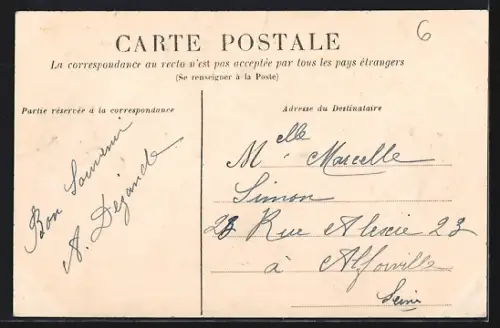 6
CARTE POSTALE
La correspondance au recto n'est pas acceptée par tous les pays étrangers
(Se renseigner à la Poste)
Partie réservée à la correspondance
Adresse du Destinataire
Bon Souvenir
A. Dejande
Melle Marcelle
Simon
23 Rue Alexie 23
à Alforville
Seine